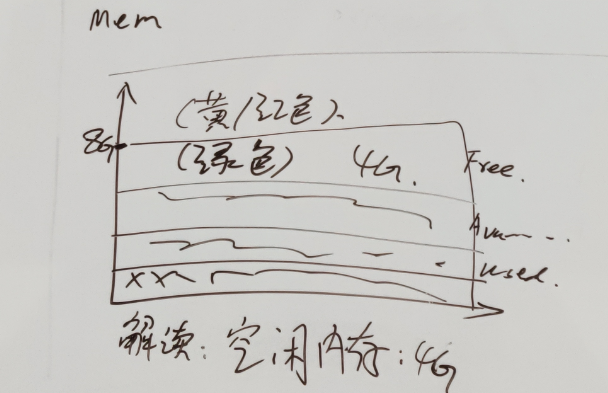 Mem
(黄/红色).
8G
(绿色) 4G. Free.
used.
解读: 空闲内存: 4G